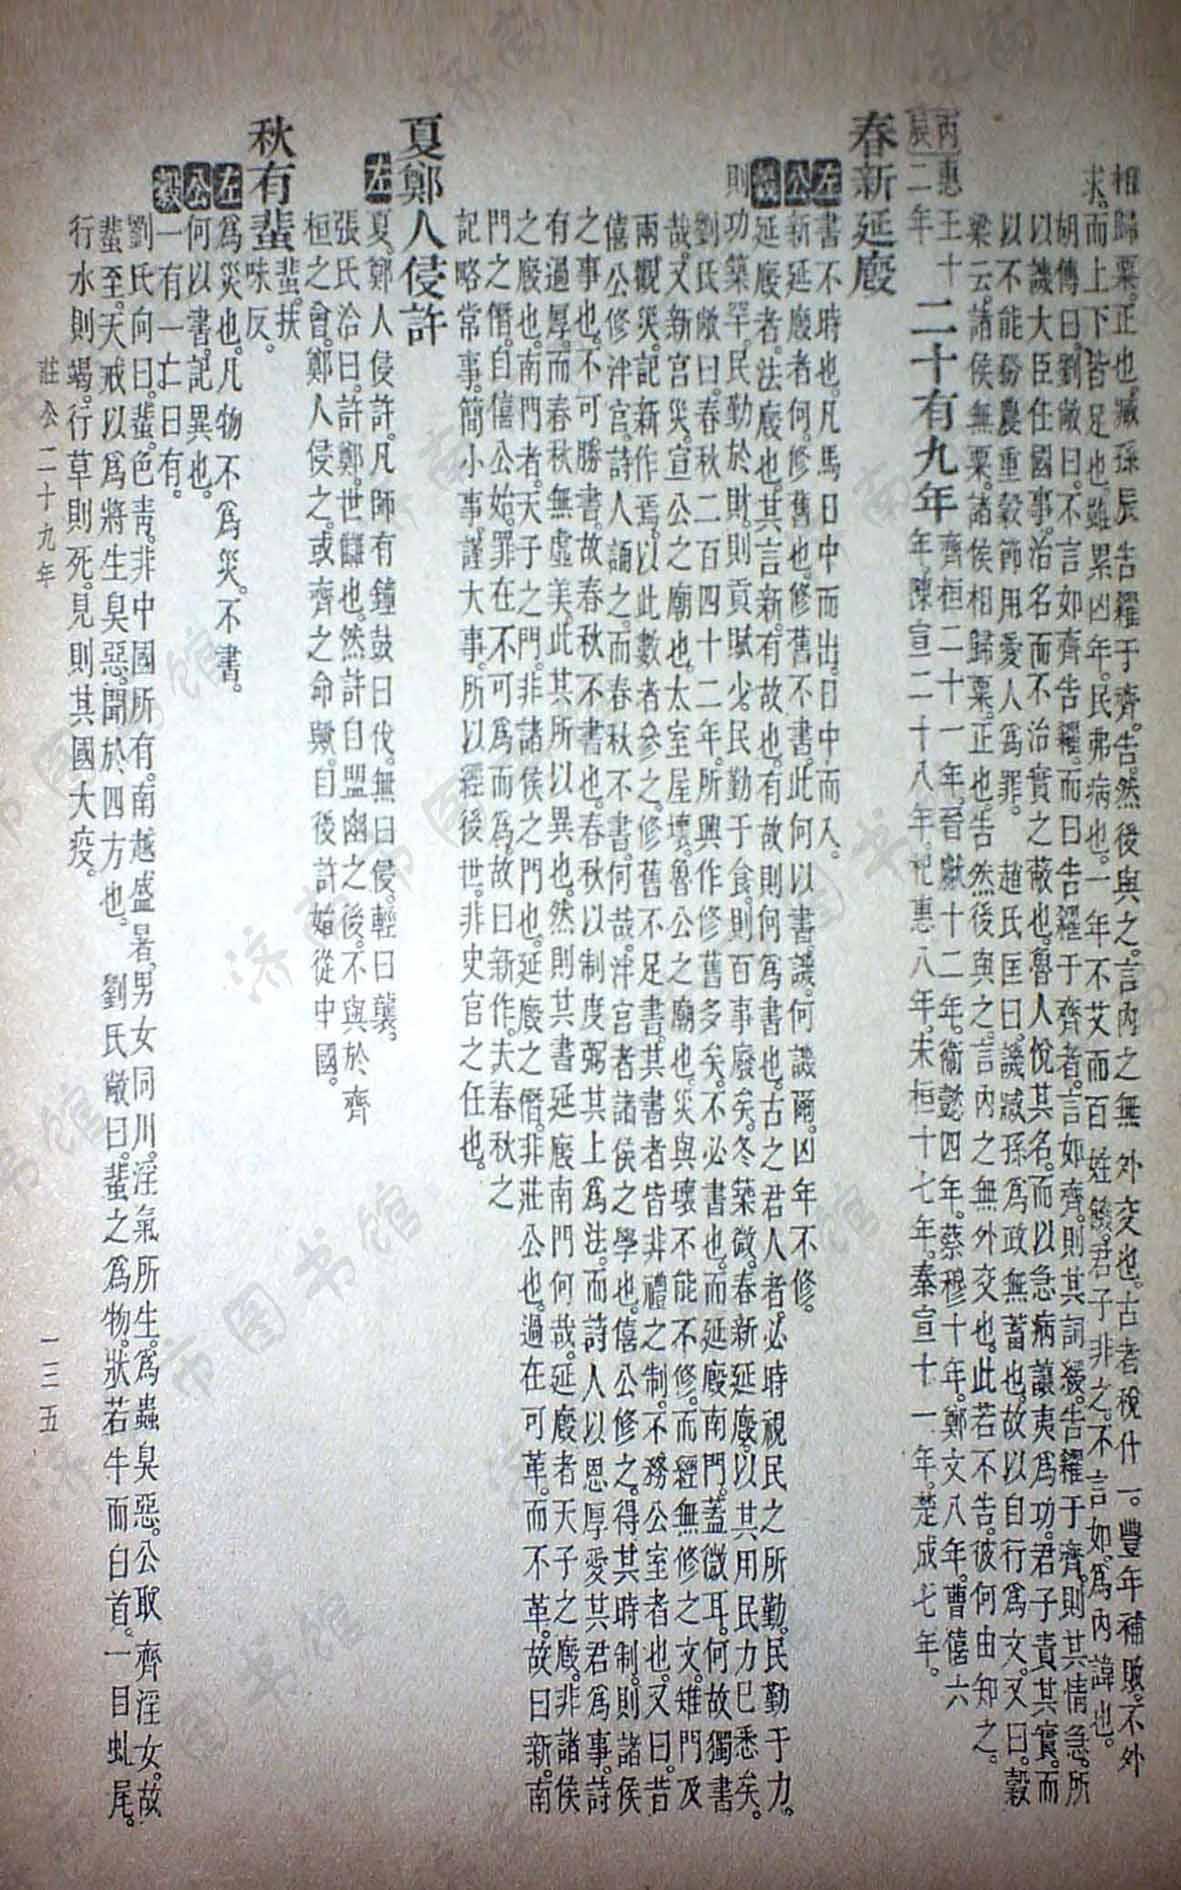 相歸粟。正也。臧孫辰告糴于齊。告。然後與之。言內之無外交也。古者稅什一。豐年補敗。不外
求。而上下皆足也。雖累凶年。民弗病也。一年不艾而百姓饑。君子非之。不言如。為內諱也。
胡傳曰。劉敞曰。不言如齊告糴。而曰告糴于齊者。言如齊。則其詞緩。告糴于齊。則其情急。所
以譏大臣任國事。治名而不治實之蔽也。魯人悅其名。而以急病讓夷為功。君子責其實。而
以不能務農重穀節用愛人為罪。 趙氏匡曰。譏臧孫為政無蓄也。故以自行為文。又曰。穀
梁云。諸侯無粟。諸侯相歸粟。正也。告然後與之。言內之無外交也。此若不告。彼何由知之。
丙辰 惠王十二年 二十有九年 齊桓二十一年。晉獻十二年。衞懿四年。蔡穆十年。鄭文八年。曹僖六
年。陳宣二十八年。杞惠八年。宋桓十七年。秦宣十一年。楚成七年。
春新延廄
左 書不時也。凡馬日中而出。日中而入。
公 新延廄者何。修舊也。修舊不書。此何以書。譏。何譏爾。凶年不修。
穀 延廄者。法廄也。其言新。有故也。有故則何為書也。古之君人者。必時視民之所勤。民勤于力。
則功築罕。民勤於財。則貢賦少。民勤于食。則百事廢矣。冬築微。春新延廄。以其用民力已悉矣。
劉氏敞曰。春秋二百四十二年。所興作修舊多矣。不必書也。而延廄南門。蓋微耳。何故獨書
哉。又新宮災。宣公之廟也。太室屋壞。魯公之廟也。災與壞不能不修。而經無修之文。雉門及
兩觀災。記新作焉。以此數者參之。修舊不足書。其書者皆非禮之制。不務公室者也。又曰。昔
僖公修泮宮。詩人誦之。而春秋不書。何哉。泮宮者諸侯之學也。僖公修之。得其時制。則諸侯
之事也。不可勝書。故春秋不書也。春秋以制度弼其上為法。而詩人以恩厚愛其君為事。詩
有過厚。而春秋無虛美。此其所以異也。然則其書延廄南門何哉。延廄者天子之廄。非諸侯
之廄也。南門者。天子之門。非諸侯之門也。延廄之僭。非莊公也。過在可革。而不革。故曰新。南
門之僭。自僖公始。罪在不可為而為。故曰新作。夫春秋之
記略常事。簡小事。謹大事。所以經後世。非史官之任也。
夏鄭人侵許
左 夏。鄭人侵許。凡師有鐘鼓曰伐。無曰侵。輕曰襲。
張氏洽曰。許鄭。世讎也。然許自盟幽之後。不與於齊
桓之會。鄭人侵之。或齊之命歟。自後許始從中國。
秋有蜚 蜚。扶味反。
左 為災也。凡物不為災。不書。
公 何以書。記異也。
穀 一有一亡曰有。
劉氏向曰。蜚。色青。非中國所有。南越盛暑。男女同川。淫氣所生。為蟲臭惡。公取齊淫女。故
蜚至。天戒以為將生臭惡。聞於四方也。 劉氏敞曰。蜚之為物。狀若牛而白首。一目虬尾。
行水則竭。行草則死。見則其國大疫。
莊公二十九年
一三五